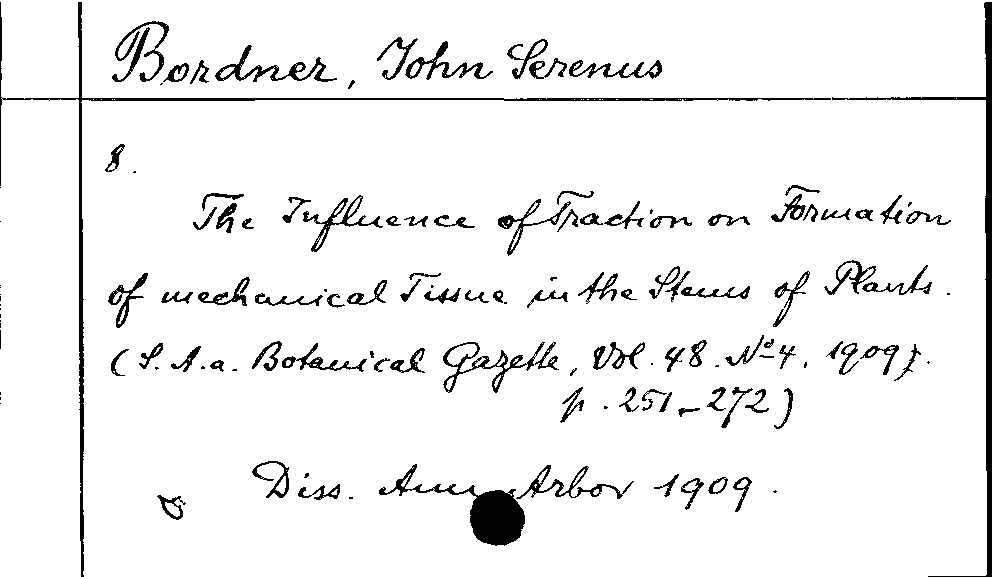 Bordner, John Serenus
8.
The Influence of Traction on Formation
of mechanical Tissue in the Stems of Plants.
(S. A. a. Botanical Gazette, Vol. 48. No 4. 1909).
p. 251-272)
Diss. Ann Arbor 1909.